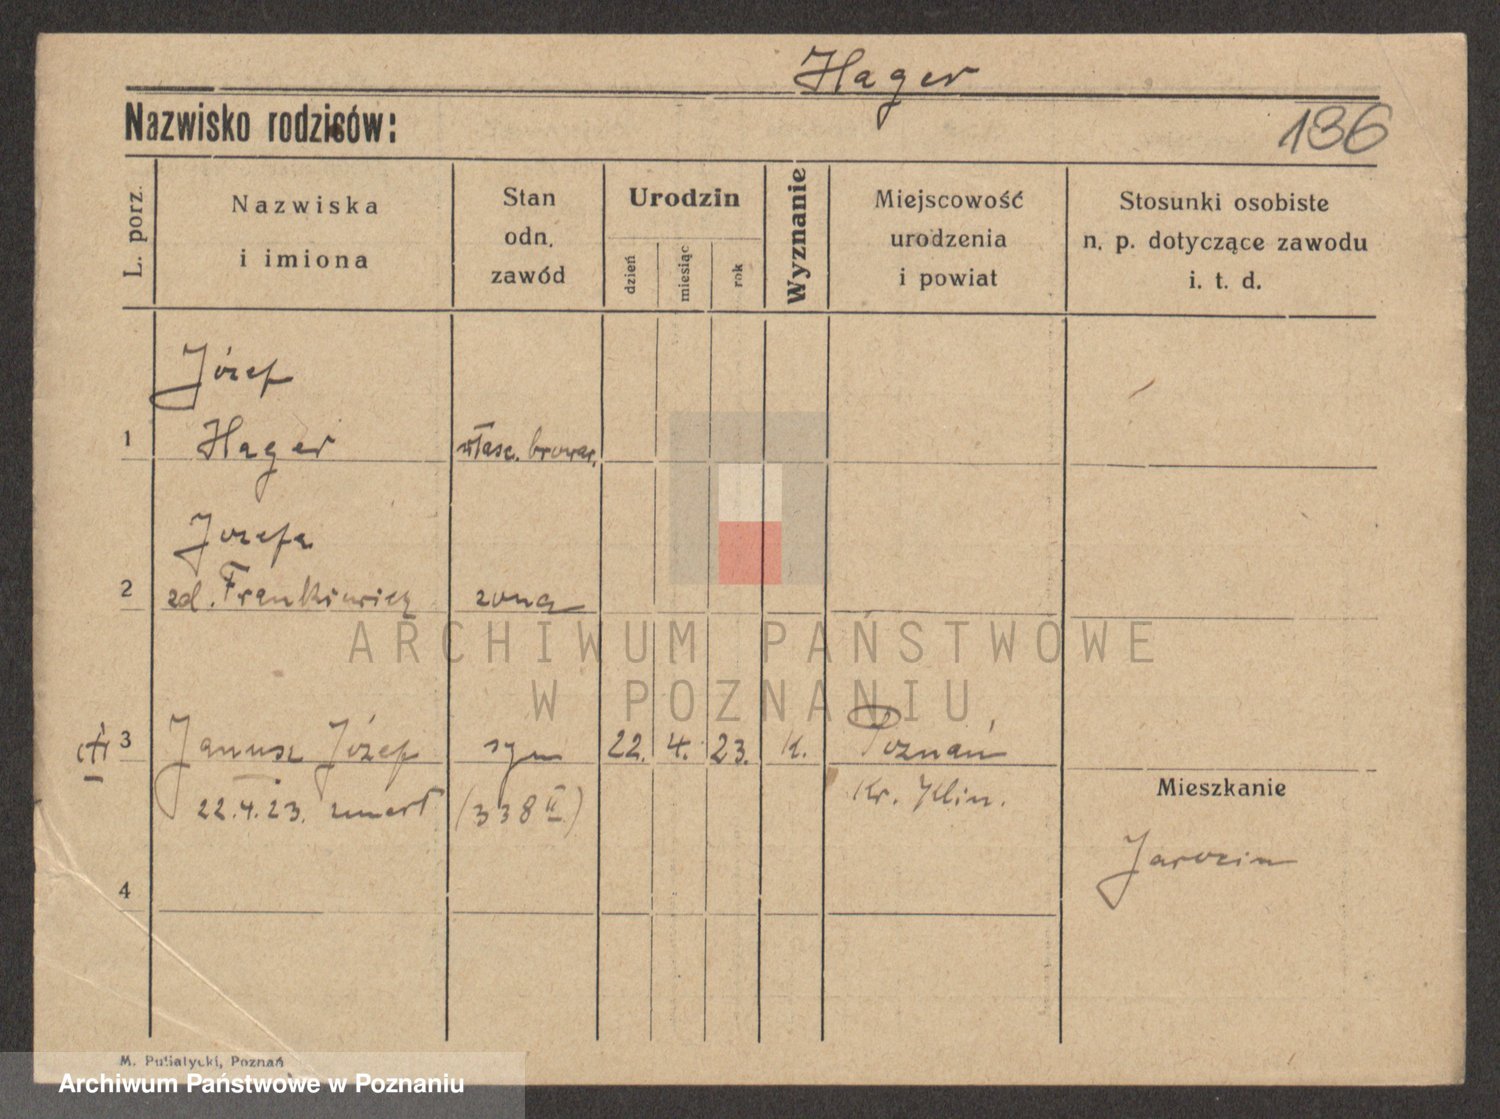 Hager
Nazwisko rodziców:
136
L. porz.
Nazwiska
i imiona
Stan
odn.
zawód
Urodzin
dzień
miesiąc
rok
Wyznanie
Miejscowość
urodzenia
i powiat
Stosunki osobiste
n. p. dotyczące zawodu
i. t. d.
Józef
1 Hager właśc. browar.
Jozefa
2 zd. Frankiewicz zona
ARCHIWUM PAŃSTWOWE
W POZNANIU
3 Janusz Józef syn 22. 4. 23. K. Poznań
22.4.23. zmarł (338 II) Kr. Klin.
Mieszkanie
Jarocin
4
M. Putiatycki, Poznań
Archiwum Państwowe w Poznaniu